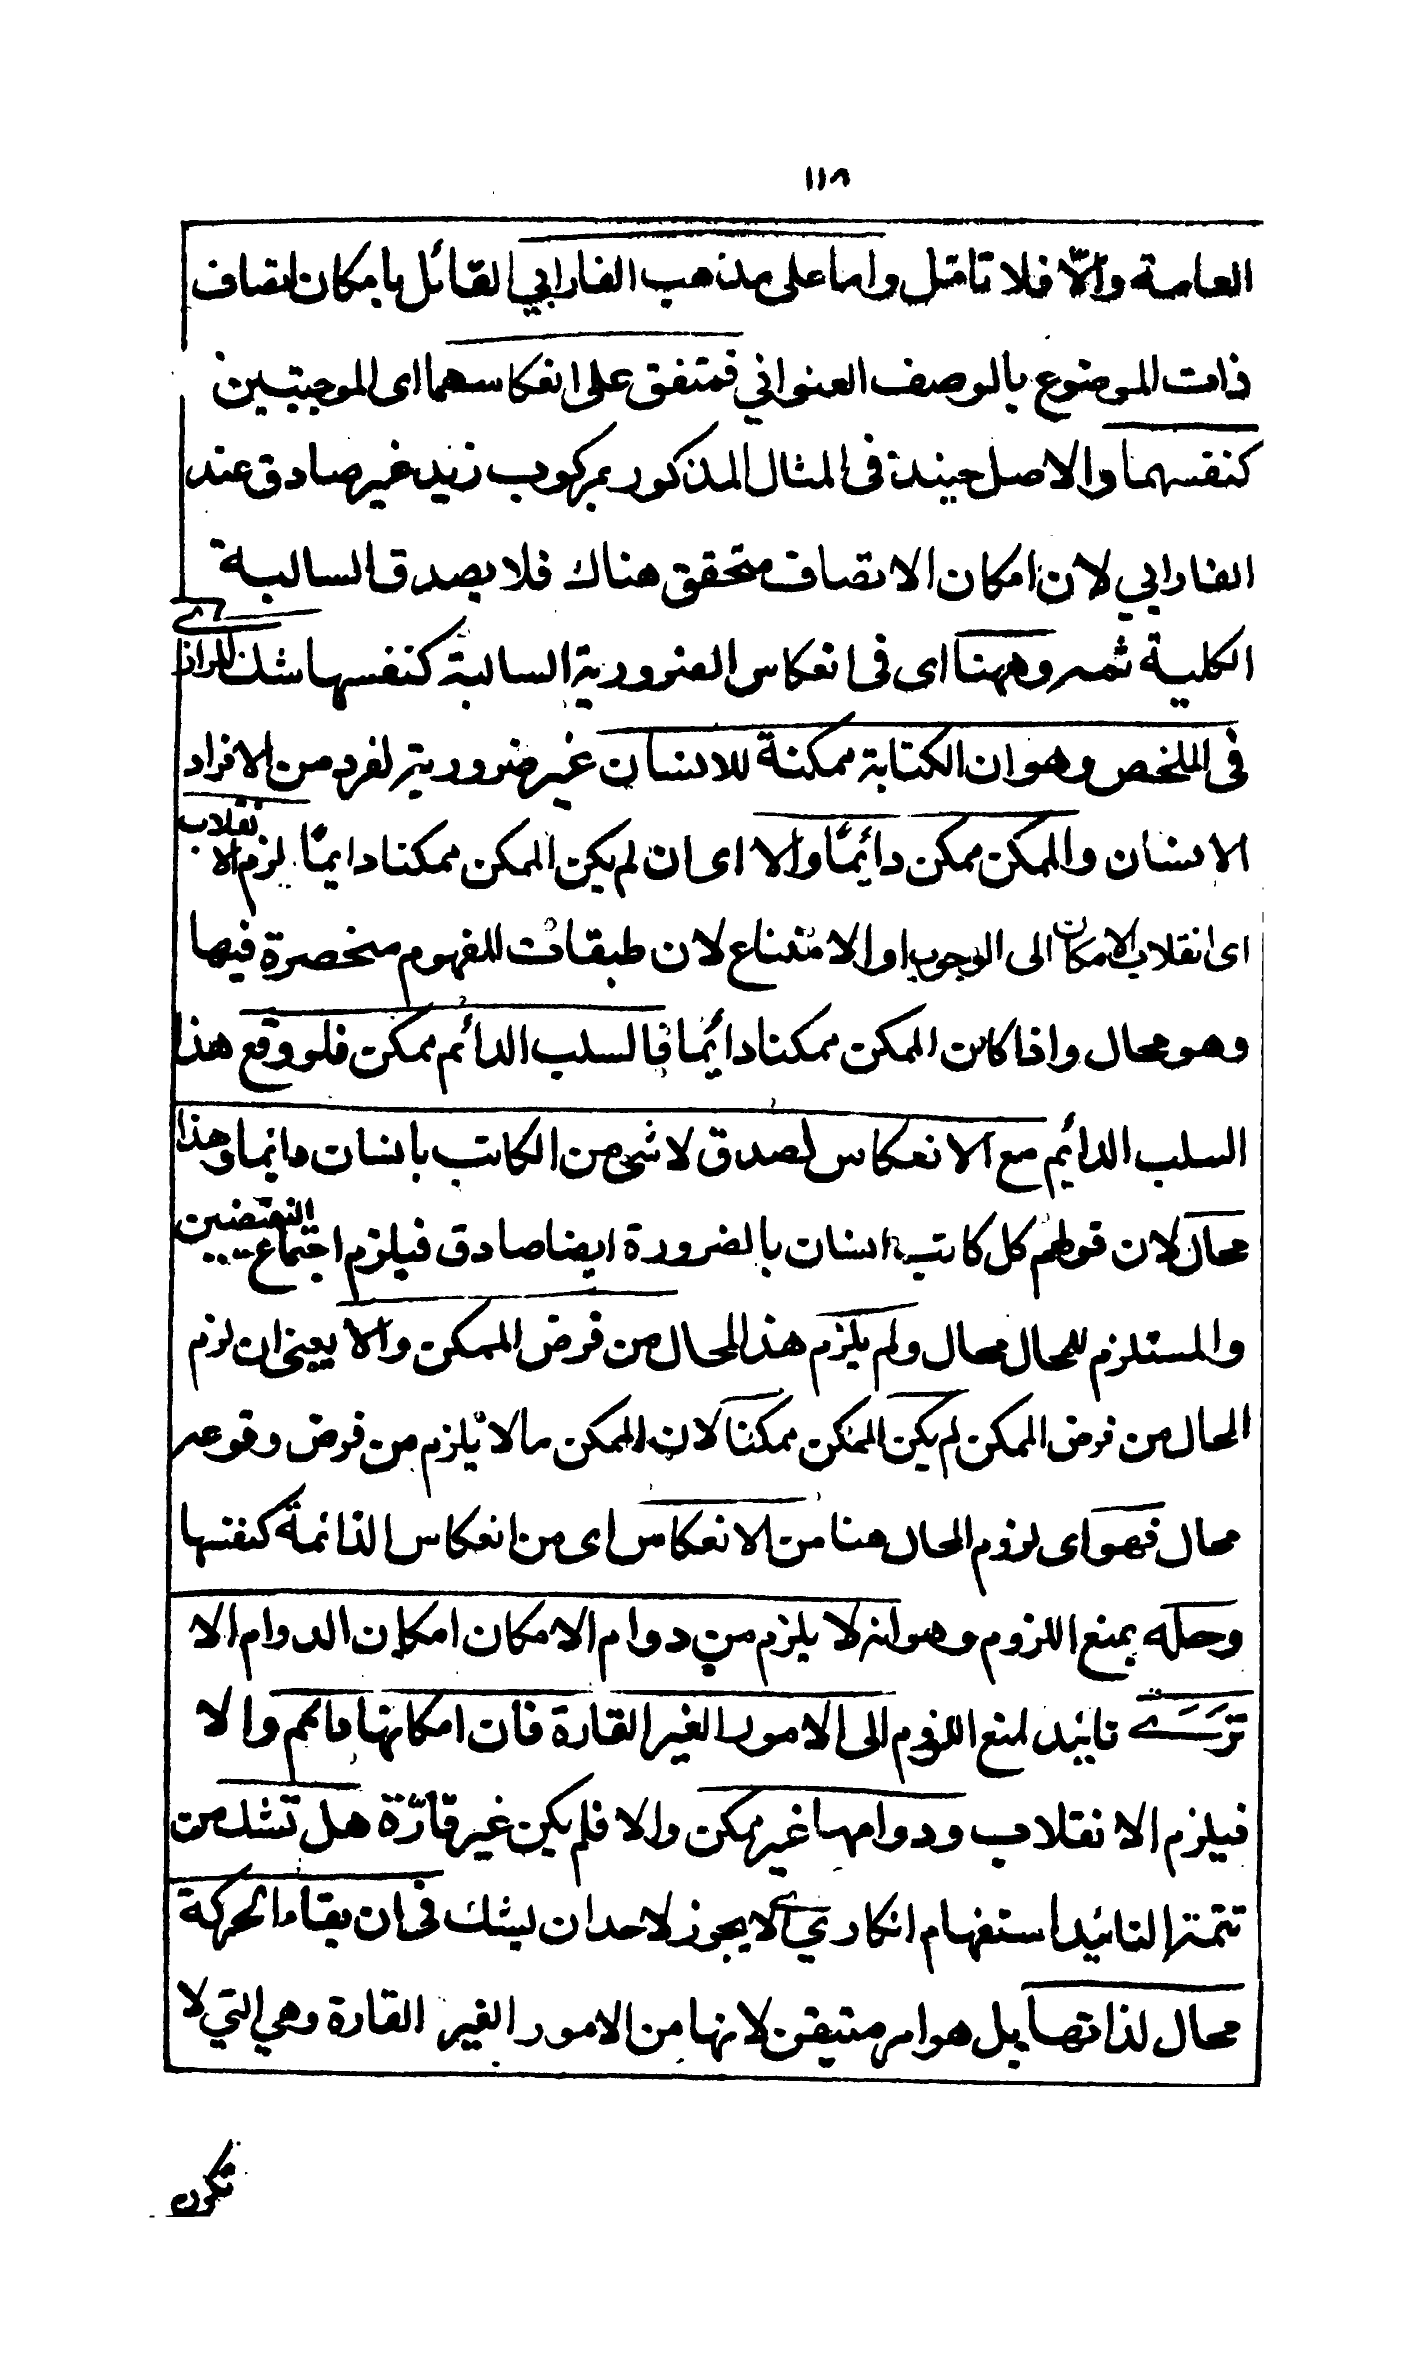 ١١٨
العامة والّا فلا تامّل واما على مذهب الفارابي القائل بامكان اتصاف
ذات الموضوع بالوصف العنواني فمتفق على انعكاسهما اى الموجبتين
كنفسهما والاصل حينئذ فى المثال المذكور بمركوب زيد غير صادق عند
الفارابي لان امكان الاتصاف متحقق هناك فلا يصدق السالبة
الكلية ثمه وههنا اى فى انعكاس الضرورية السالبة كنفسها شك للرازى
فى الملخص وهو ان الكتابة ممكنة للانسان غير ضرورية لفرد من الافراد
الانسان والممكن ممكن دائمًا والا اى ان لم يكن الممكن ممكنا دايمًا لزم الانقلاب
اى انقلاب الامكان الى الوجوب او الامتناع لان طبقات المفهوم منحصرة فيها
وهو محال واذا كان الممكن ممكنا دائما فالسلب الدائم ممكن فلو وقع هذا
السلب الدائم مع الانعكاس لصدق لا شئ من الكاتب بانسان دائما وهذا
محال لان قولهم كل كاتب انسان بالضرورة ايضا صادق فيلزم اجتماع النقيضين
والمستلزم للمحال محال ولم يلزم هذا المحال من فرض الممكن والا يعنى ان لزم
المحال من فرض الممكن لم يكن الممكن ممكنا لان الممكن مالا يلزم من فرض وقوعه
محال فهو اى لزوم المحال هنا من الانعكاس اى من انعكاس الدائمة كنفسها
وحله بمنع اللزوم وهو انه لا يلزم من دوام الامكان امكان الدوام الا
ترى تائيد لمنع اللزوم الى الامور الغير القارة فان امكانها دائم والا
فيلزم الانقلاب ودوامها غير ممكن والا فلم يكن غير قارّة هل تشك من
تتمة التائيد استفهام انكاري اى لا يجوز لاحد ان يشك فى ان بقاء الحركة
محال لذاتها بل هو امر متيقن لانها من الامور الغير القارة وهي التي لا
تكون